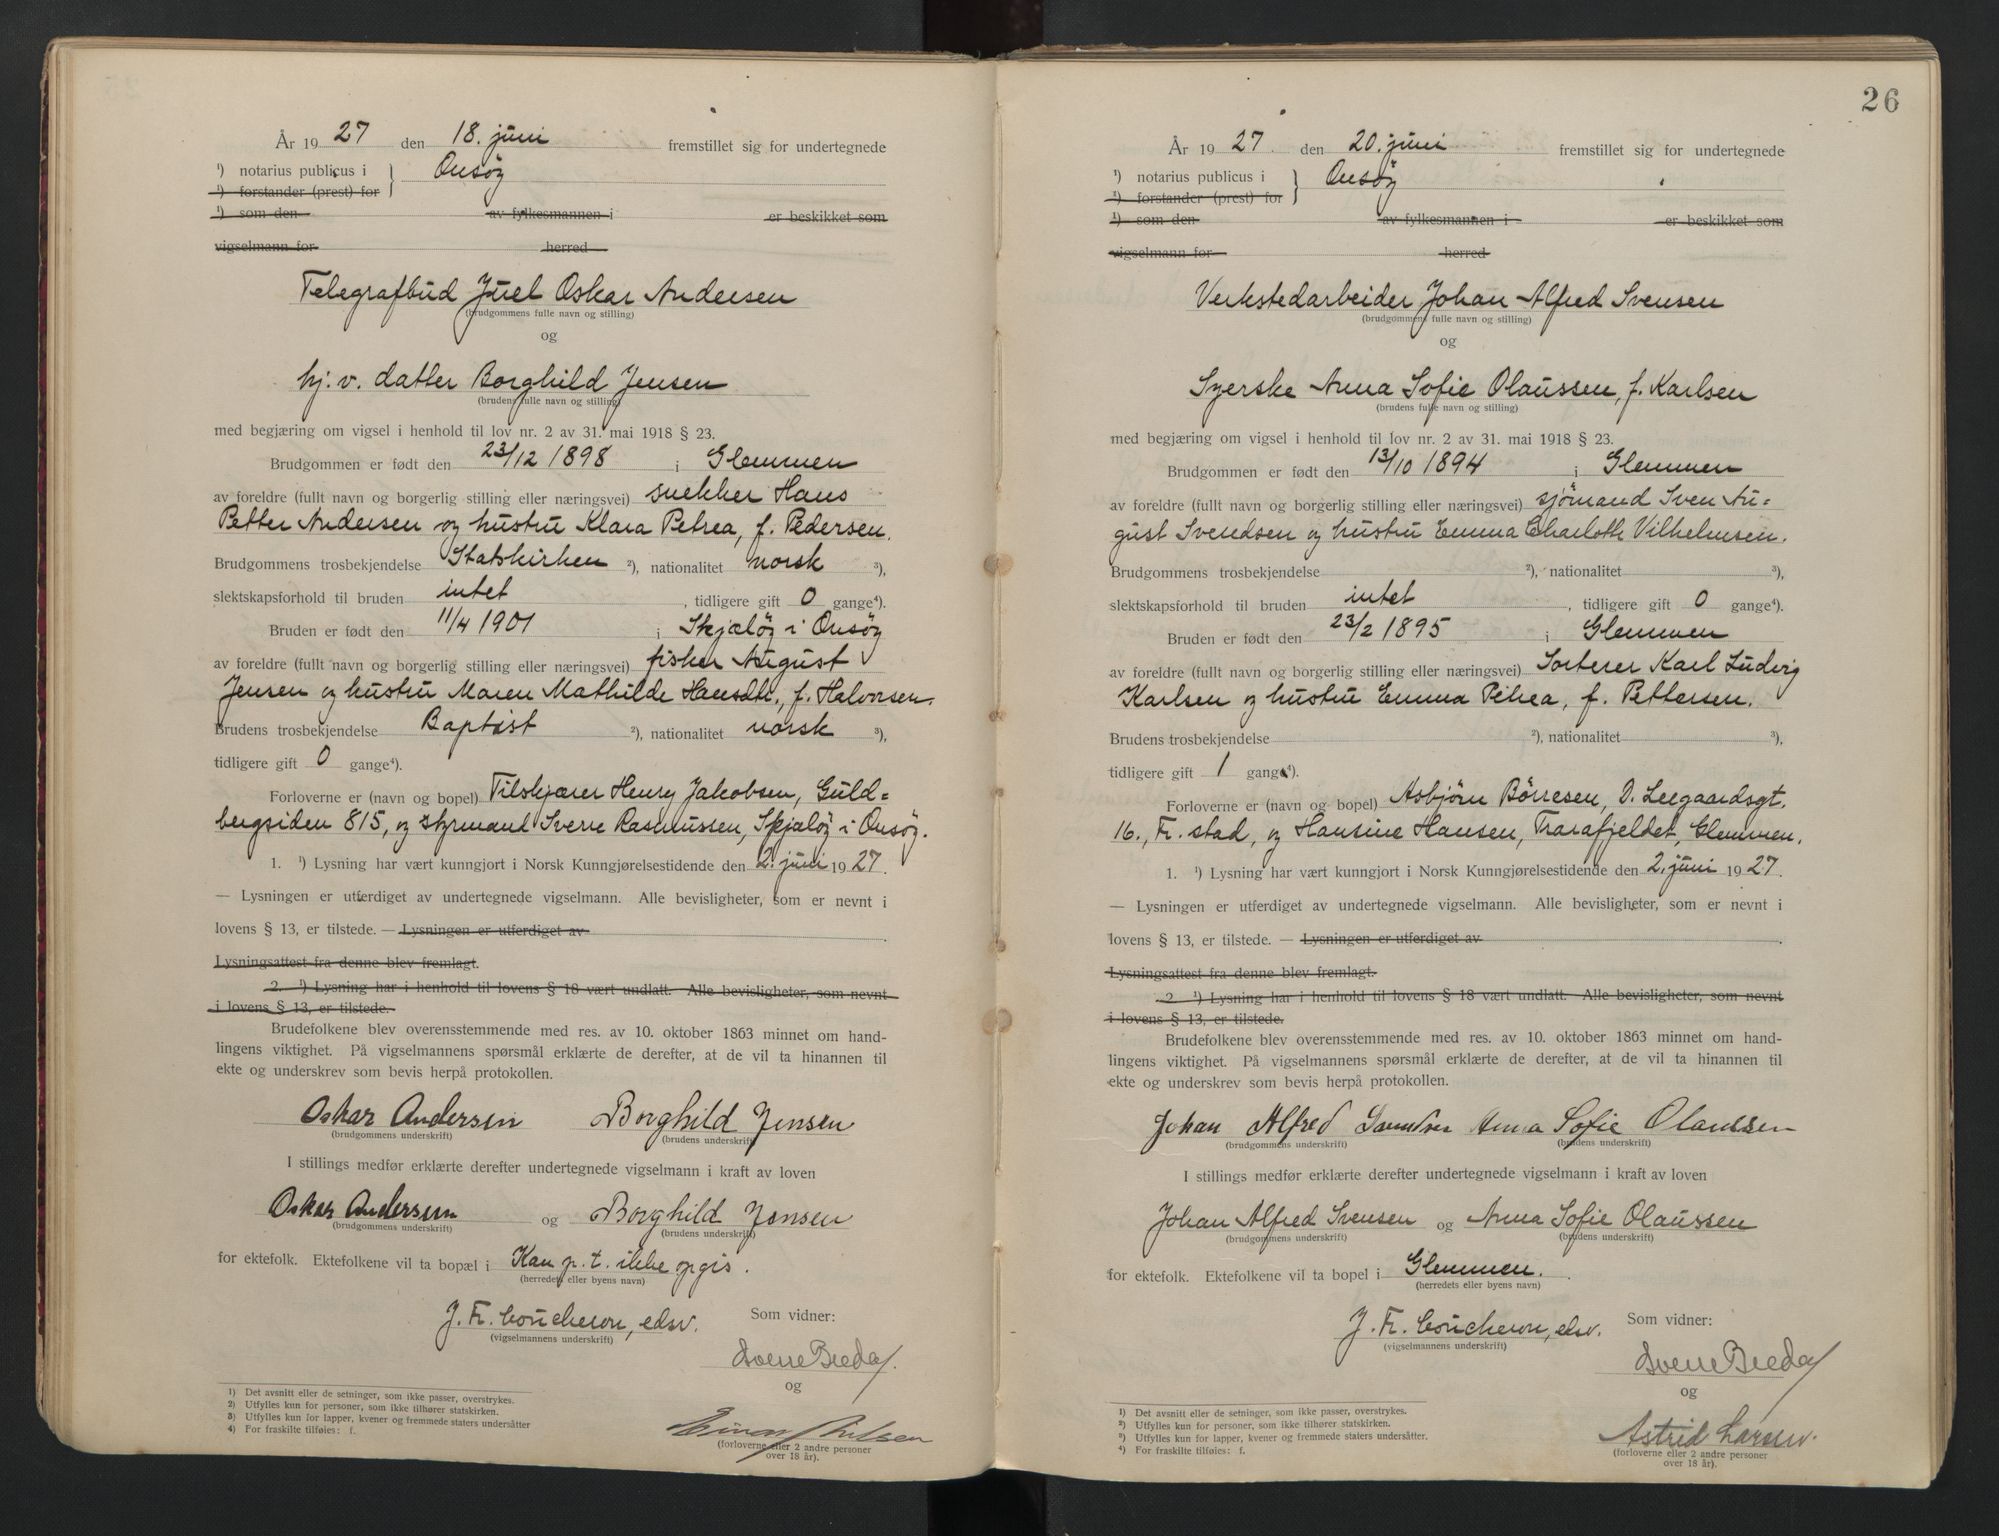 År 1927 den 18. juni fremstillet sig for undertegnede
¹) notarius publicus i } Onsöy
¹) forstander (prest) for
¹) som den av fylkesmannen i er beskikket som
vigselmann for herred
Telegrafbud Juel Oskar Andersen
(brudgommens fulle navn og stilling)
og
hj. v. datter Borghild Jensen
(brudens fulle navn og stilling)
med begjæring om vigsel i henhold til lov nr. 2 av 31. mai 1918 § 23.
Brudgommen er født den 23/12 1898 i Glemmen
av foreldre (fullt navn og borgerlig stilling eller næringsvei) snekker Hans
Petter Andersen og hustru Klara Petrea, f. Pedersen.
Brudgommens trosbekjendelse Statskirken ²), nationalitet norsk ³),
slektskapsforhold til bruden intet , tidligere gift 0 gange⁴).
Bruden er født den 11/4 1901 i Skjælöy i Onsöy
av foreldre (fullt navn og borgerlig stilling eller næringsvei) fisker August
Jensen og hustru Maren Mathilde Hansdtr., f. Halvorsen.
Brudens trosbekjendelse Baptist ²), nationalitet norsk ³),
tidligere gift 0 gange⁴).
Forloverne er (navn og bopel) Tilskjærer Henry Jakobsen, Guld=
bergsiden 815, og styrmand Sverre Rasmussen, Skjælöy i Onsöy.
1. ¹) Lysning har vært kunngjort i Norsk Kunngjørelsestidende den 2. juni 1927.
— Lysningen er utferdiget av undertegnede vigselmann. Alle bevisligheter, som er nevnt i
lovens § 13, er tilstede. — Lysningen er utferdiget av .
Lysningsattest fra denne blev fremlagt.
2. ¹) Lysning har i henhold til lovens § 18 vært undlatt. Alle bevisligheter, som nevnt
i lovens § 13, er tilstede.
Brudefolkene blev overensstemmende med res. av 10. oktober 1863 minnet om hand-
lingens viktighet. På vigselmannens spørsmål erklærte de derefter, at de vil ta hinannen til
ekte og underskrev som bevis herpå protokollen.
Oskar Andersen Borghild Jensen
(brudgommens underskrift) (brudens underskrift)
I stillings medfør erklærte derefter undertegnede vigselmann i kraft av loven
Oskar Andersen og Borghild Jensen
(brudgommens underskrift) (brudens underskrift)
for ektefolk. Ektefolkene vil ta bopæl i Kan p. t. ikke opgis.
(herredets eller byens navn)
J. Fr. Coucheron, edsv. Som vidner:
(vigselmannens underskrift)
Sverre Bredal
og
Nilsen
(forloverne eller 2 andre personer
over 18 år).
1) Det avsnitt eller de setninger, som ikke passer, overstrykes.
2) Utfylles kun for personer, som ikke tilhører statskirken.
3) Utfylles kun for lapper, kvener og fremmede staters undersåtter
4) For fraskilte tilføies: f.
26
År 1927 den 20. juni fremstillet sig for undertegnede
¹) notarius publicus i } Onsöy
¹) forstander (prest) for
¹) som den av fylkesmannen i er beskikket som
vigselmann for herred
Verkstedarbeider Johan Alfred Svensen
(brudgommens fulle navn og stilling)
og
Syerske Anna Sofie Olaussen, f. Karlsen
(brudens fulle navn og stilling)
med begjæring om vigsel i henhold til lov nr. 2 av 31. mai 1918 § 23.
Brudgommen er født den 13/10 1894 i Glemmen
av foreldre (fullt navn og borgerlig stilling eller næringsvei) sjömand Sven Au=
gust Svendsen og hustru Emma Charloth Vilhelmsen.
Brudgommens trosbekjendelse ²), nationalitet ³),
slektskapsforhold til bruden intet , tidligere gift 0 gange⁴).
Bruden er født den 23/2 1895 i Glemmen
av foreldre (fullt navn og borgerlig stilling eller næringsvei) Sorterer Karl Ludvig
Karlsen og hustru Emma Petrea, f. Pettersen.
Brudens trosbekjendelse ²), nationalitet ³),
tidligere gift 1 gang ⁴).
Forloverne er (navn og bopel) Asbjörn Börresen, O. Leegaardsgt.
16., Fr. stad, og Hansine Hansen, Trarafjeldet, Glemmen.
1. ¹) Lysning har vært kunngjort i Norsk Kunngjørelsestidende den 2. juni 1927.
— Lysningen er utferdiget av undertegnede vigselmann. Alle bevisligheter, som er nevnt i
lovens § 13, er tilstede. — Lysningen er utferdiget av .
Lysningsattest fra denne blev fremlagt.
2. ¹) Lysning har i henhold til lovens § 18 vært undlatt. Alle bevisligheter, som nevnt
i lovens § 13, er tilstede.
Brudefolkene blev overensstemmende med res. av 10. oktober 1863 minnet om hand-
lingens viktighet. På vigselmannens spørsmål erklærte de derefter, at de vil ta hinannen til
ekte og underskrev som bevis herpå protokollen.
Johan Alfred Svendsen Anna Sofie Olaussen
(brudgommens underskrift) (brudens underskrift)
I stillings medfør erklærte derefter undertegnede vigselmann i kraft av loven
Johan Alfred Svensen og Anna Sofie Olaussen
(brudgommens underskrift) (brudens underskrift)
for ektefolk. Ektefolkene vil ta bopel i Glemmen.
(herredets eller byens navn)
J. Fr. Coucheron, edsv. Som vidner:
(vigselmannens underskrift)
Sverre Bredal
og
Astrid Larsen.
(forloverne eller 2 andre personer
over 18 år).
¹) Det avsnitt eller de setninger, som ikke passer, overstrykes.
²) Utfylles kun for personer, som ikke tilhører statskirken.
³) Utfylles kun for lapper, kvener og fremmede staters undersåtter.
⁴) For fraskilte tilføies: f.